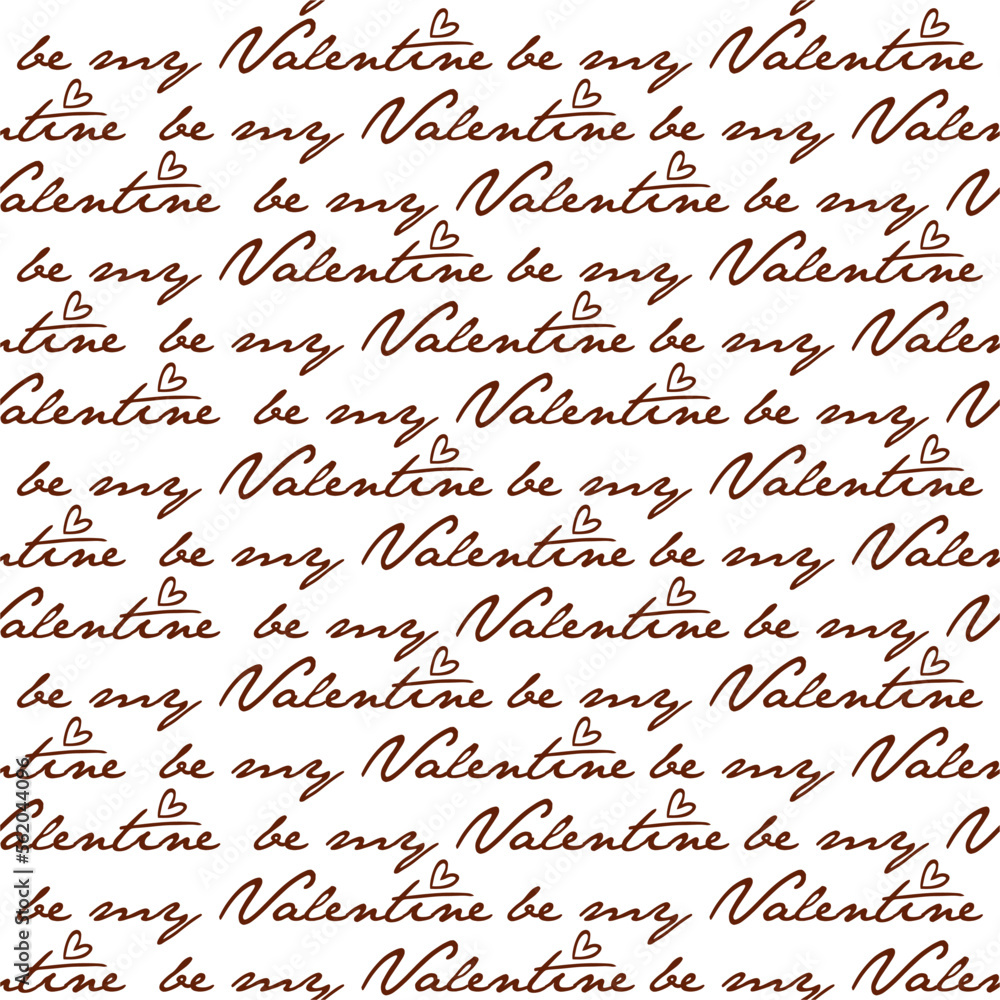 be my Valentine be my Valentine
ntine be my Valentine be my Valen
alentine be my Valentine be my V
be my Valentine be my Valentine
ntine be my Valentine be my Valen
alentine be my Valentine be my V
be my Valentine be my Valentine
ntine be my Valentine be my Valen
alentine be my Valentine be my V
be my Valentine be my Valentine
ntine be my Valentine be my Valen
alentine be my Valentine be my V
be my Valentine be my Valentine
ntine be my Valentine be my Valen
Adobe Stock | #562044096